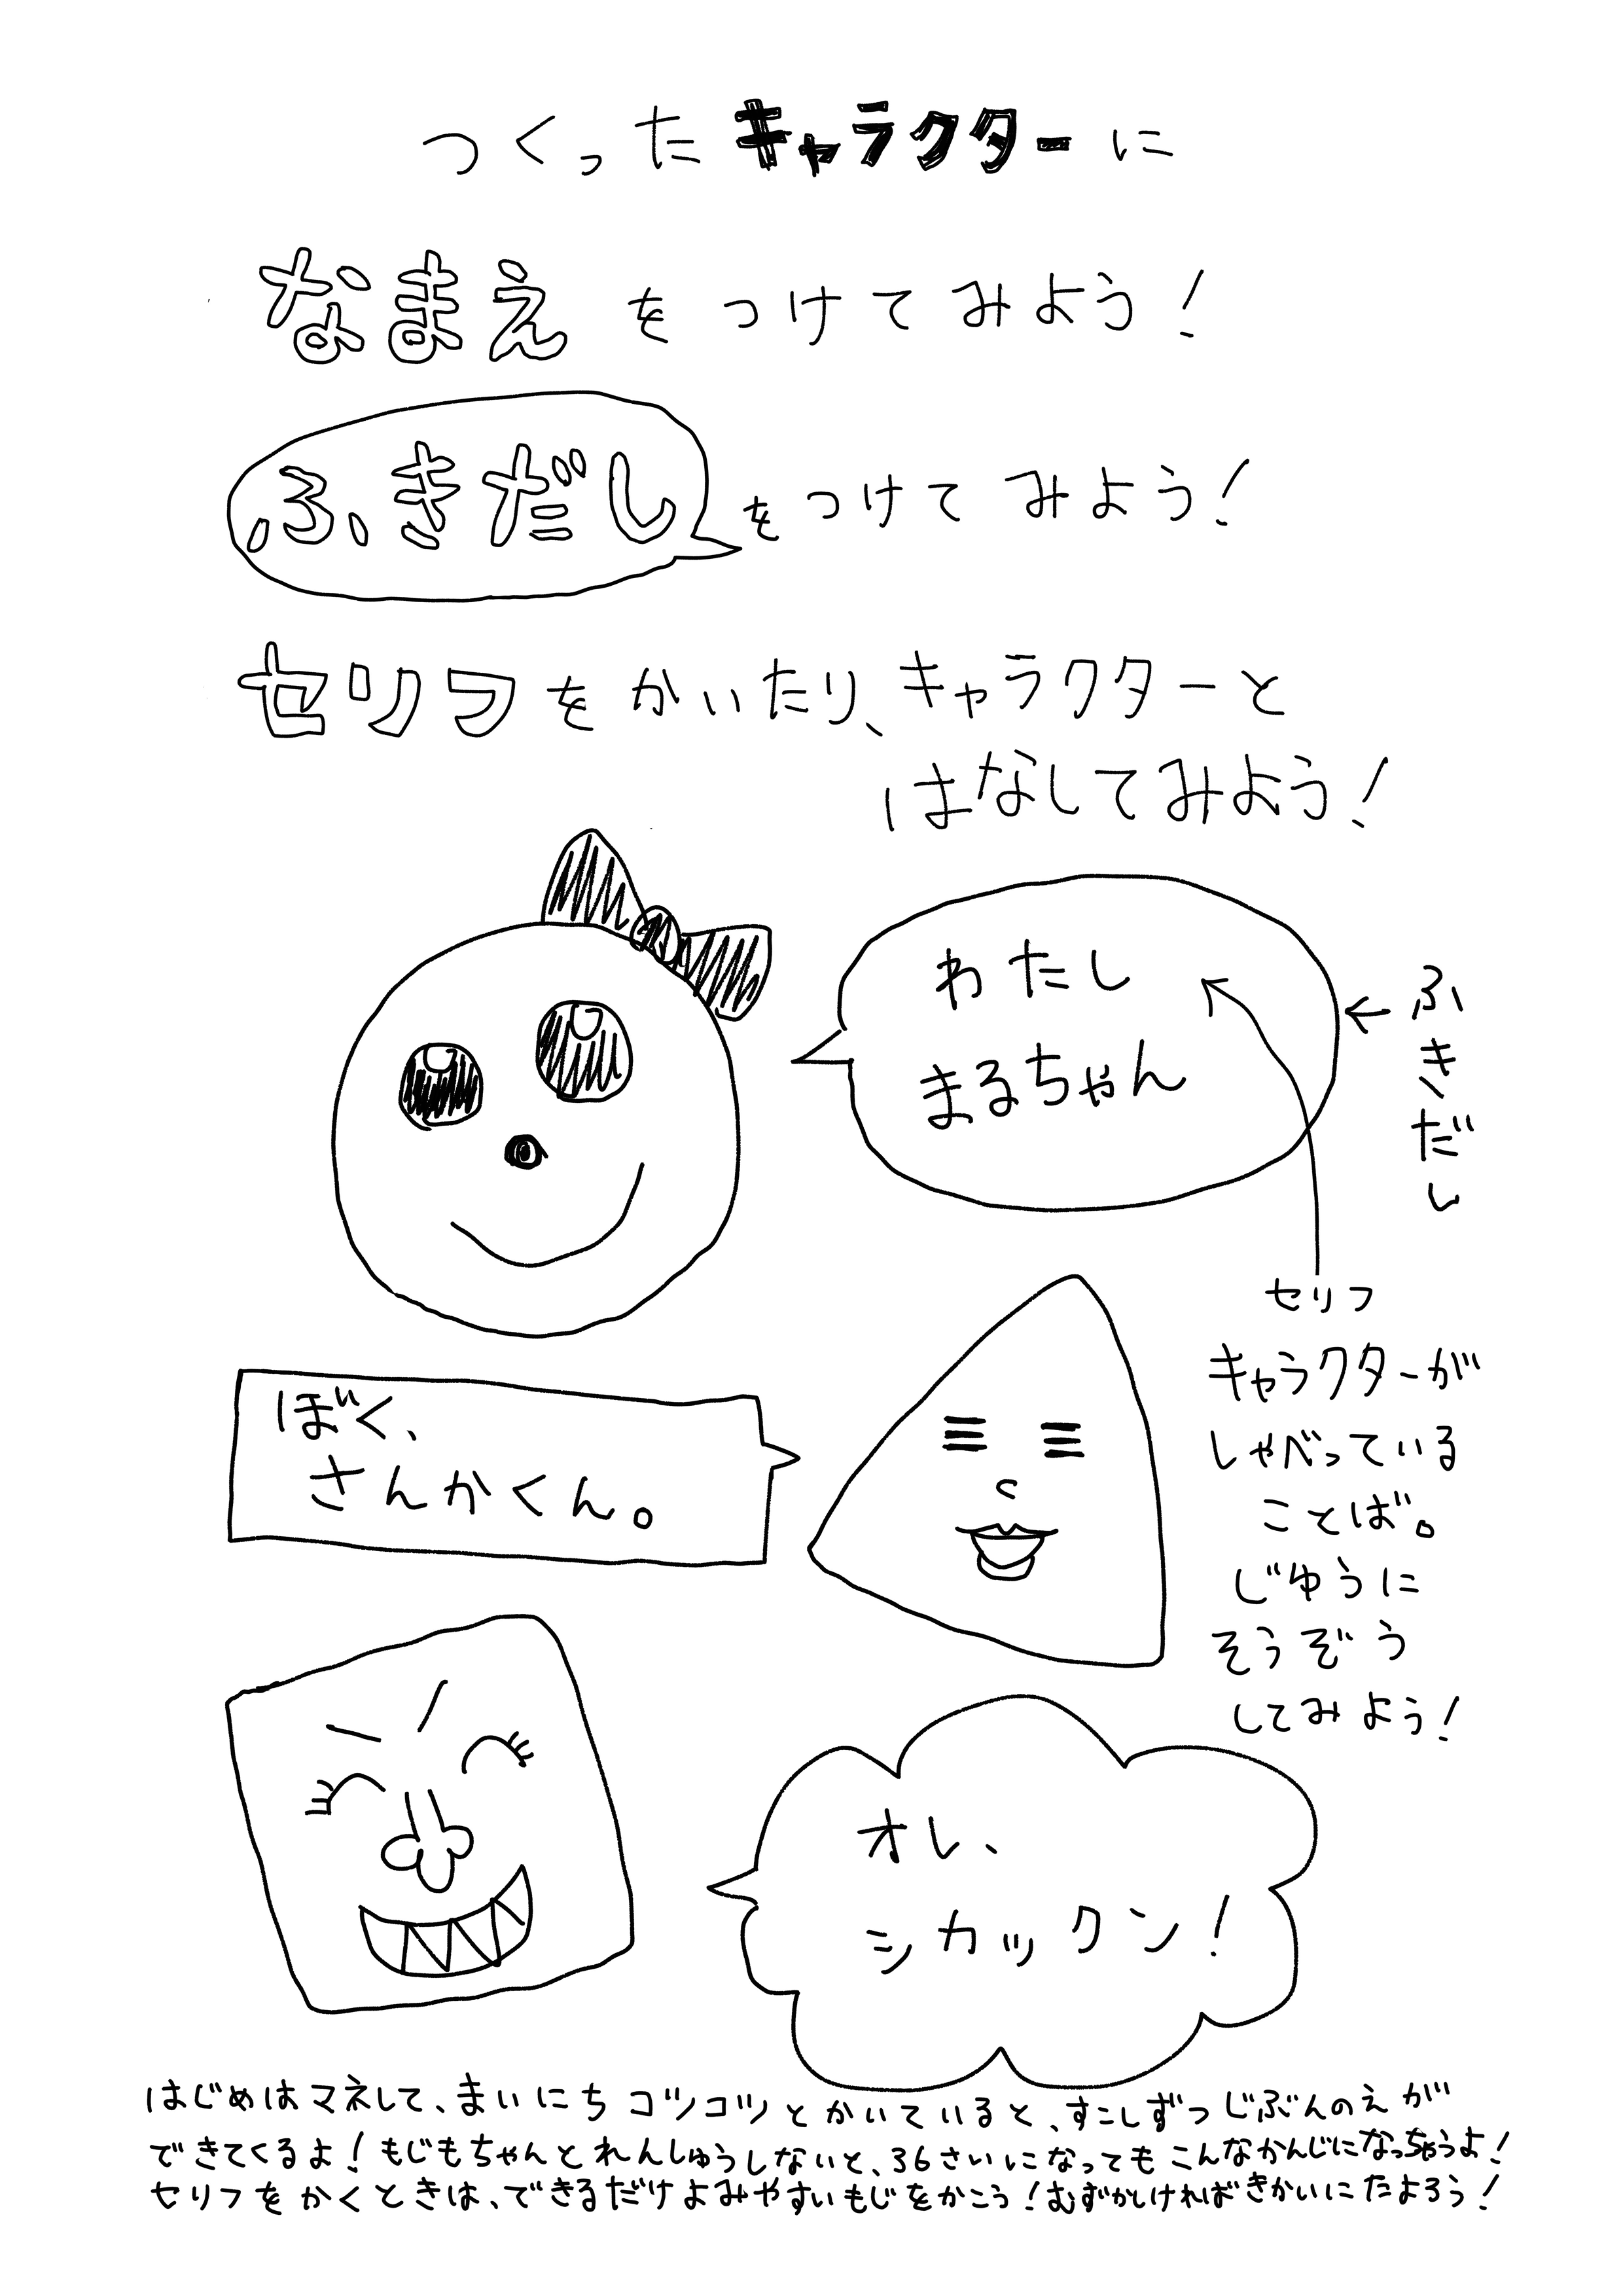 つくったキャラクターに
なまえをつけてみよう!
ふきだしをつけてみよう!
セリフをかいたり、キャラクターと
はなしてみよう!
わたし
まるちゃん
ふきだし
セリフ
キャラクターが
しゃべっている
ことば。
じゆうに
そうぞう
してみよう!
ぼく、
さんかくん。
オレ、
シカックン!
はじめはマネして、まいにちコツコツとかいていると、すこしずつじぶんのえが
できてくるよ!もじもちゃんとれんしゅうしないと、36さいになってもこんなかんじになっちゃうよ!
セリフをかくときは、できるだけよみやすいもじをかこう!むずかしければきかいにたよろう!